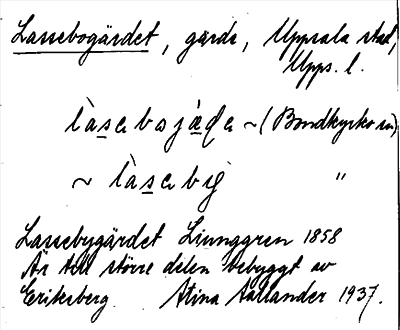 Lassebogärdet, gärde, Uppsala stad,
Upps. l.
làsebojæ̀ḍe ~ (Bondkyrko sn)
~ làsebig "
Lassebygärdet Ljunggren 1858
Är till större delen bebyggt av
Eriksberg. Stina Aallander 1937.